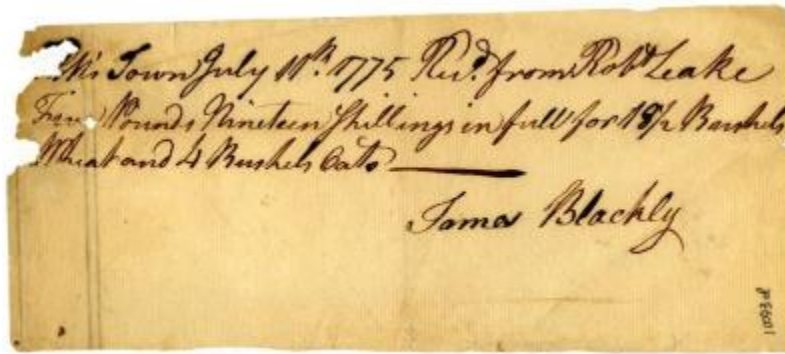 Town July 11th. 1775 Recd. from Robt Leake
Five Pounds Nineteen Shillings in full for 18½ Bushels
Wheat and 4 Bushels Oats
James Blackly